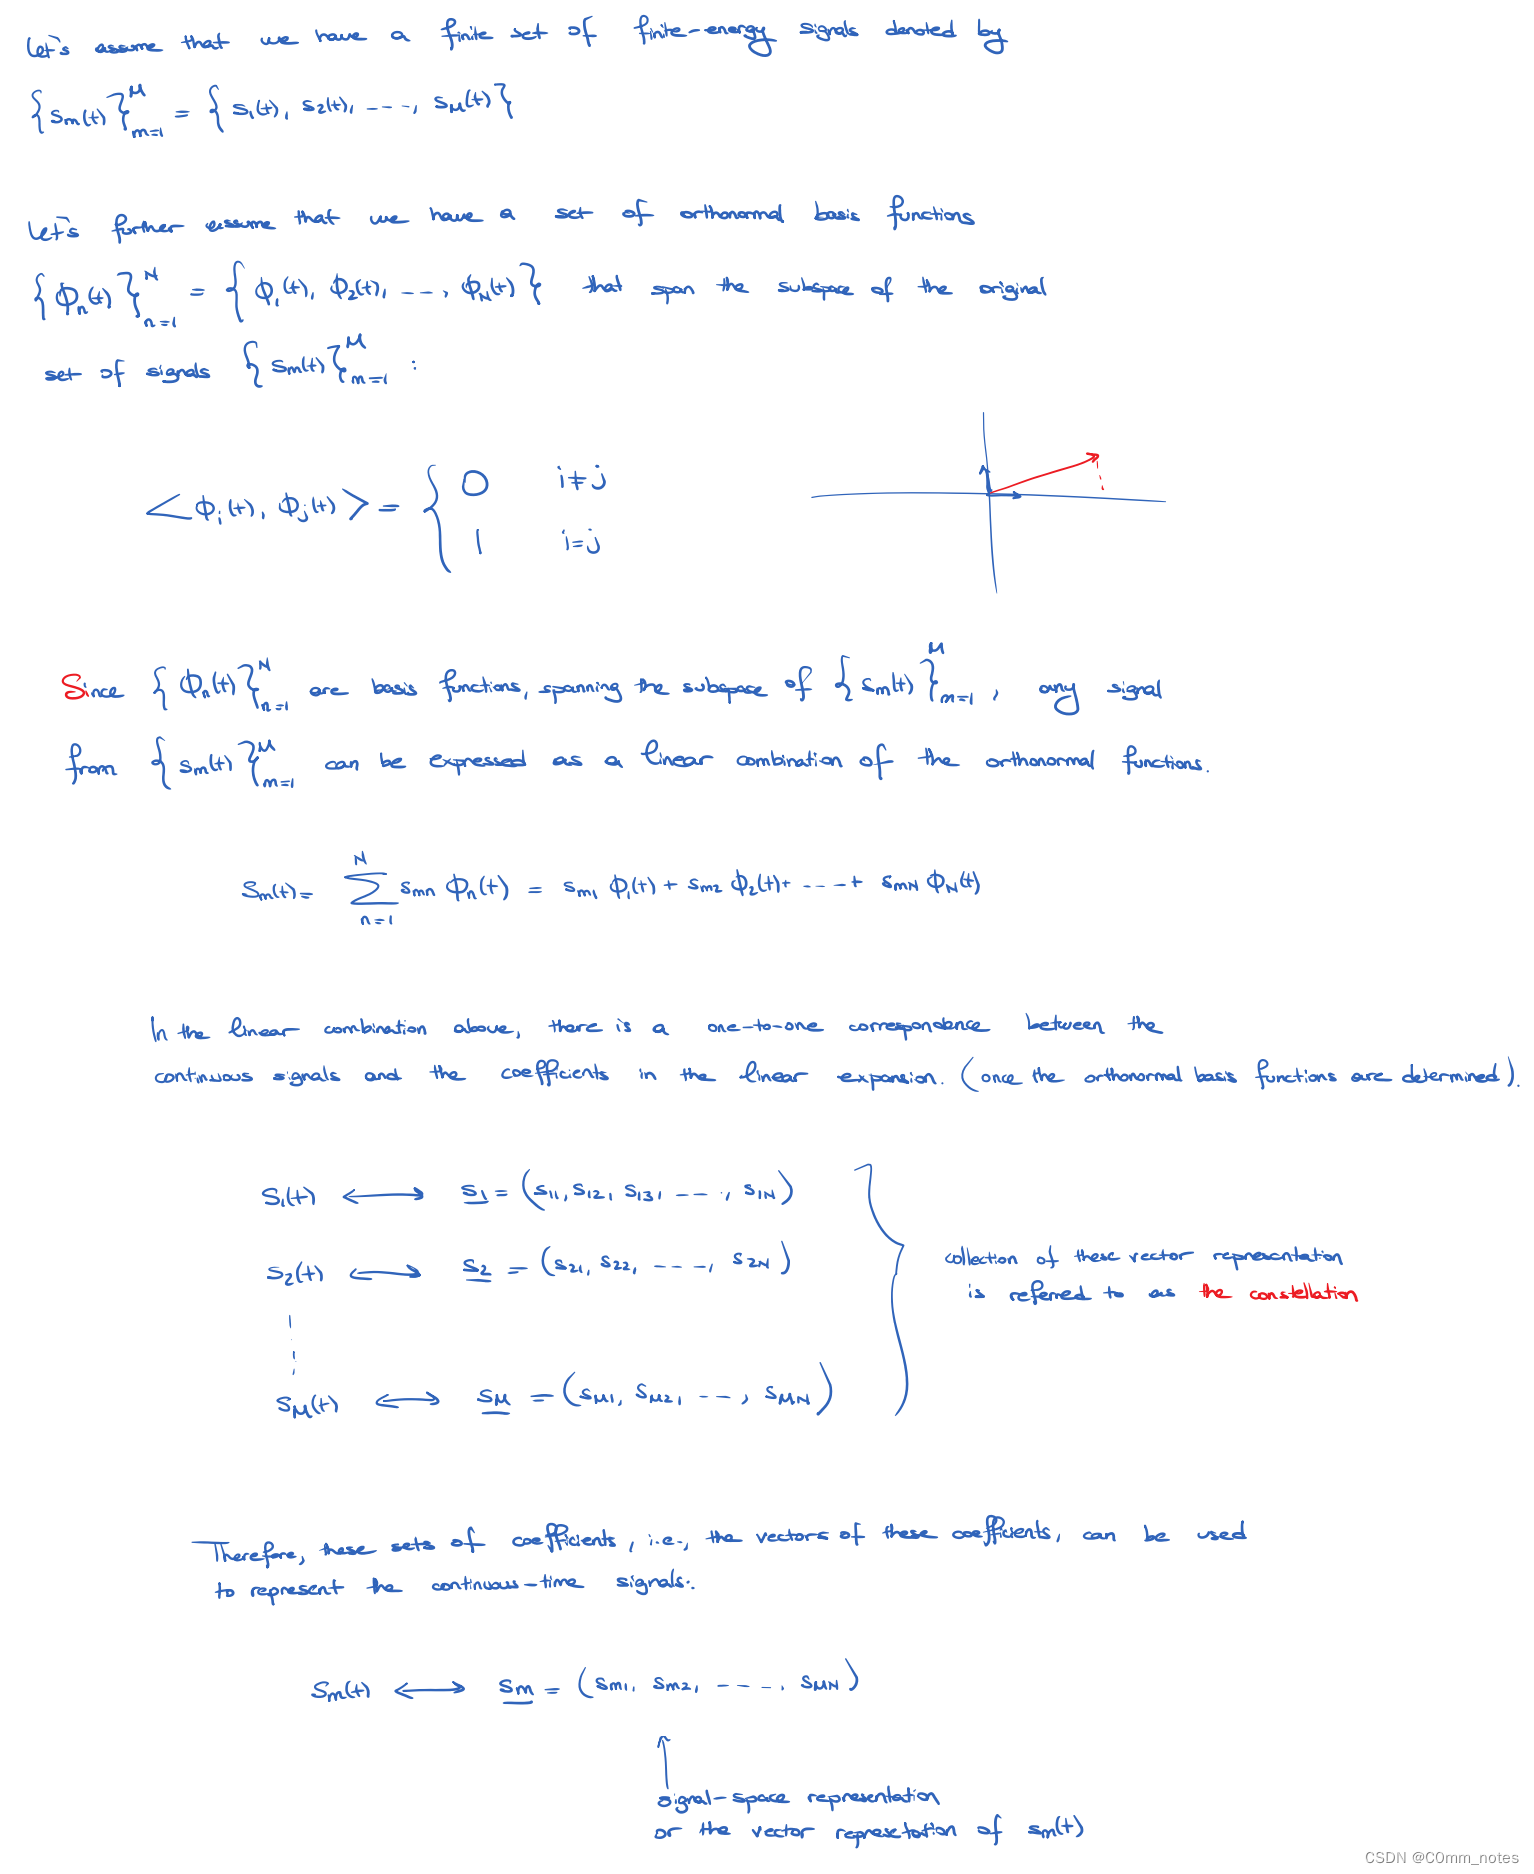 Let's assume that we have a finite set of finite-energy signals denoted by
{sm(t)}_{m=1}^{M} = {s1(t), s2(t), ----, sM(t)}
Let's further assume that we have a set of orthonormal basis functions
{ϕn(t)}_{n=1}^{N} = {ϕ1(t), ϕ2(t), ---, ϕN(t)} that span the subspace of the original
set of signals {sm(t)}_{m=1}^{M} :
<ϕi(t), ϕj(t)> = { 0 i≠j
1 i=j
Since {ϕn(t)}_{n=1}^{N} are basis functions, spanning the subspace of {sm(t)}_{m=1}^{M}, any signal
from {sm(t)}_{m=1}^{M} can be expressed as a linear combination of the orthonormal functions.
Sm(t) = ∑_{n=1}^{N} smn ϕn(t) = sm1 ϕ1(t) + sm2 ϕ2(t) + ---- + smN ϕN(t)
In the linear combination above, there is a one-to-one correspondence between the
continuous signals and the coefficients in the linear expansion. (once the orthonormal basis functions are determined).
S1(t) ⟷ s1 = (s11, s12, s13, ----, s1N)
S2(t) ⟷ s2 = (s21, s22, ----, s2N)
SM(t) ⟷ sM = (sM1, sM2, ---, sMN)
collection of these vector representation
is referred to as the constellation
Therefore, these sets of coefficients, i.e., the vectors of these coefficients, can be used
to represent the continuous-time signals.
Sm(t) ⟷ sm = (sm1, sm2, ----, sMN)
signal-space representation
or the vector represetation of sm(t)
CSDN @C0mm_notes